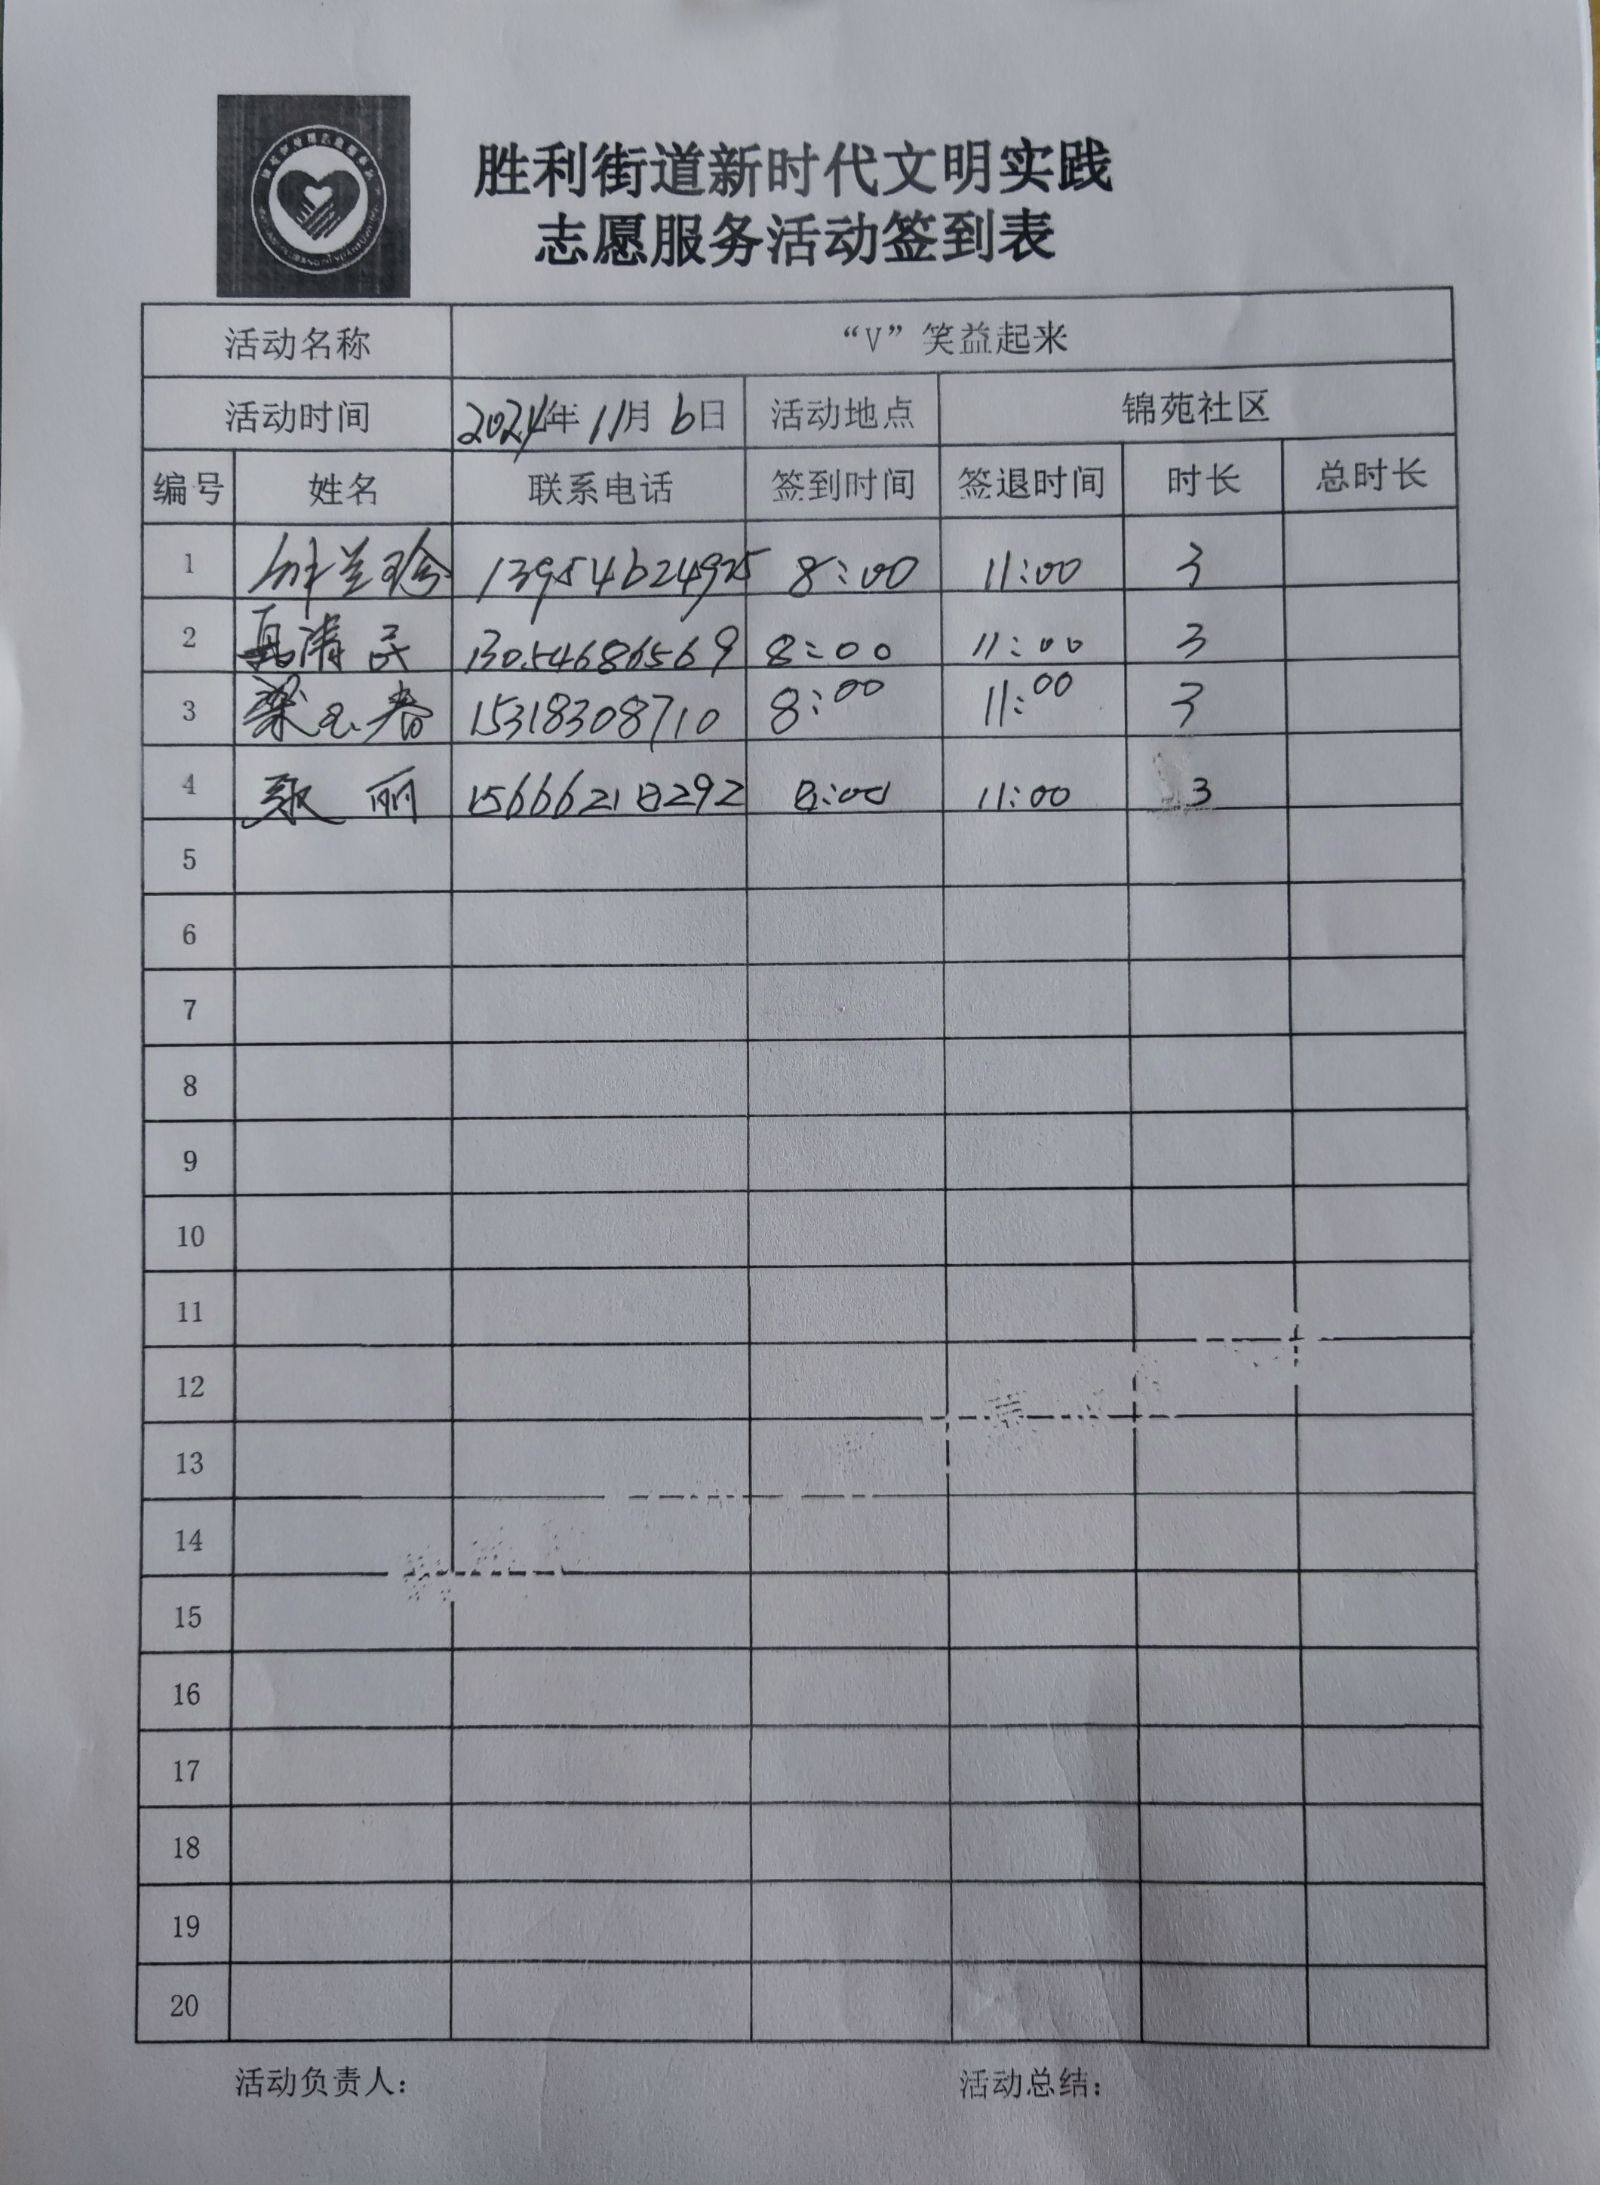 胜利街道新时代文明实践
志愿服务活动签到表
活动名称 “V”笑益起来
活动时间 2024年11月6日 活动地点 锦苑社区
编号 姓名 联系电话 签到时间 签退时间 时长 总时长
1 兰珍 13954624925 8:00 11:00 3
2 清 13054686569 8:00 11:00 3
3 梁玉春 15318308710 8:00 11:00 3
4 丽 15666218292 8:00 11:00 3
5
6
7
8
9
10
11
12
13
14
15
16
17
18
19
20
活动负责人： 活动总结：